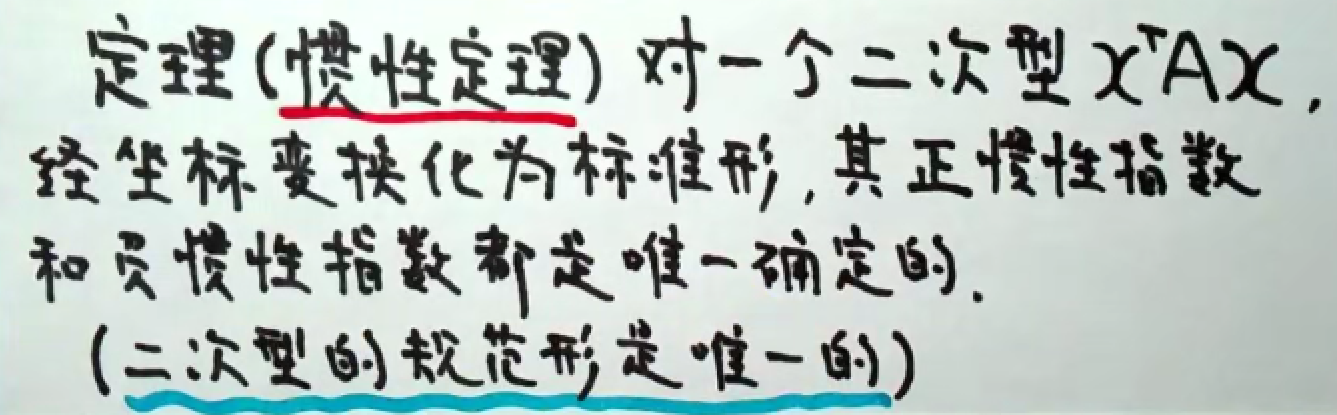 定理(惯性定理)对一个二次型xᵀAx,
经坐标变换化为标准形,其正惯性指数
和负惯性指数都是唯一确定的.
(二次型的规范形是唯一的)